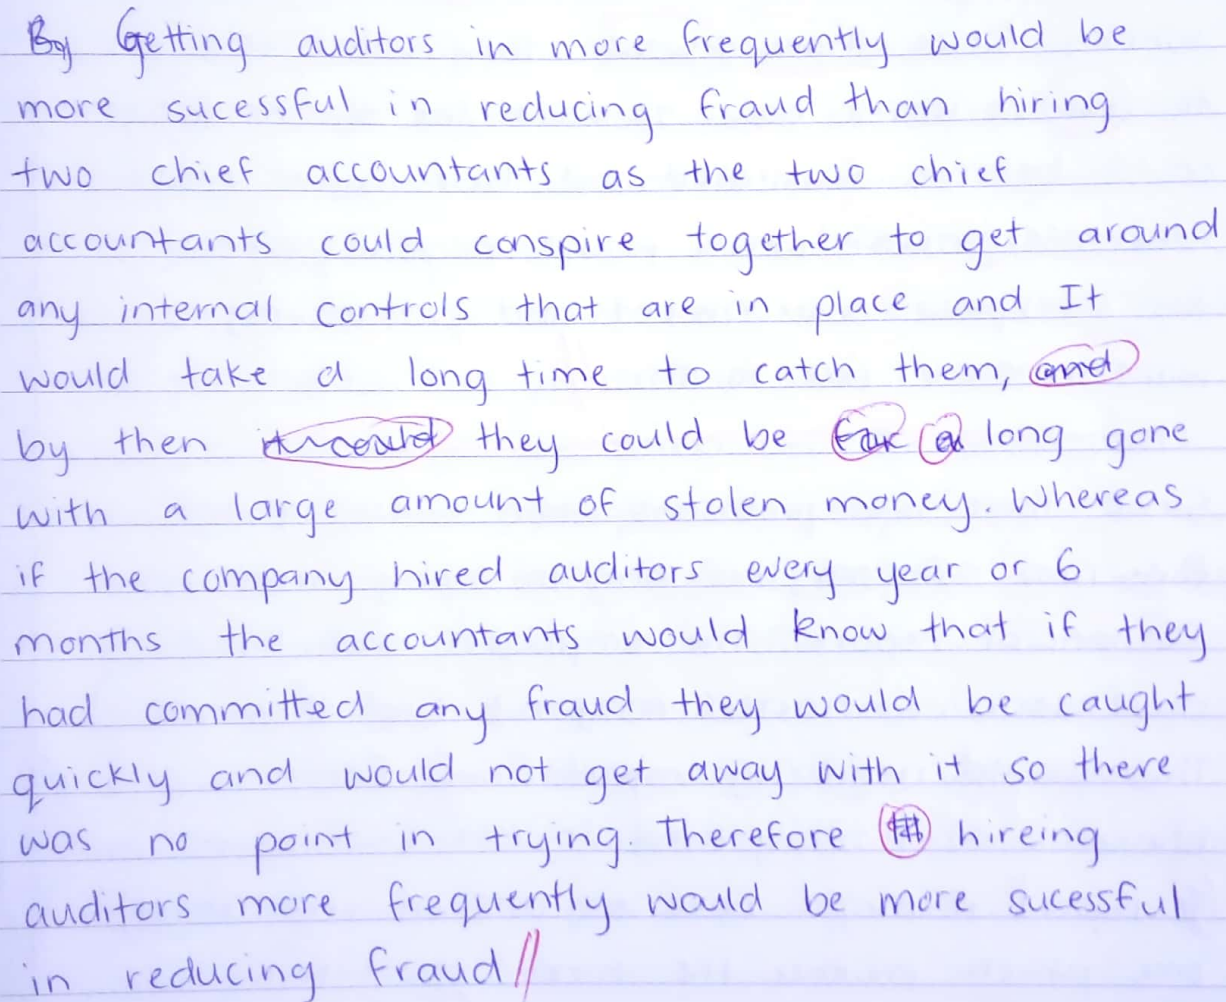 By Getting auditors in more frequently would be
more sucessful in reducing fraud than hiring
two chief accountants as the two chief
accountants could conspire together to get around
any internal controls that are in place and It
would take a long time to catch them, and
by then they could be a long gone
with a large amount of stolen money. Whereas
if the company hired auditors every year or 6
months the accountants would know that if they
had committed any fraud they would be caught
quickly and would not get away with it so there
was no point in trying. Therefore hireing
auditors more frequently would be more sucessful
in reducing fraud//